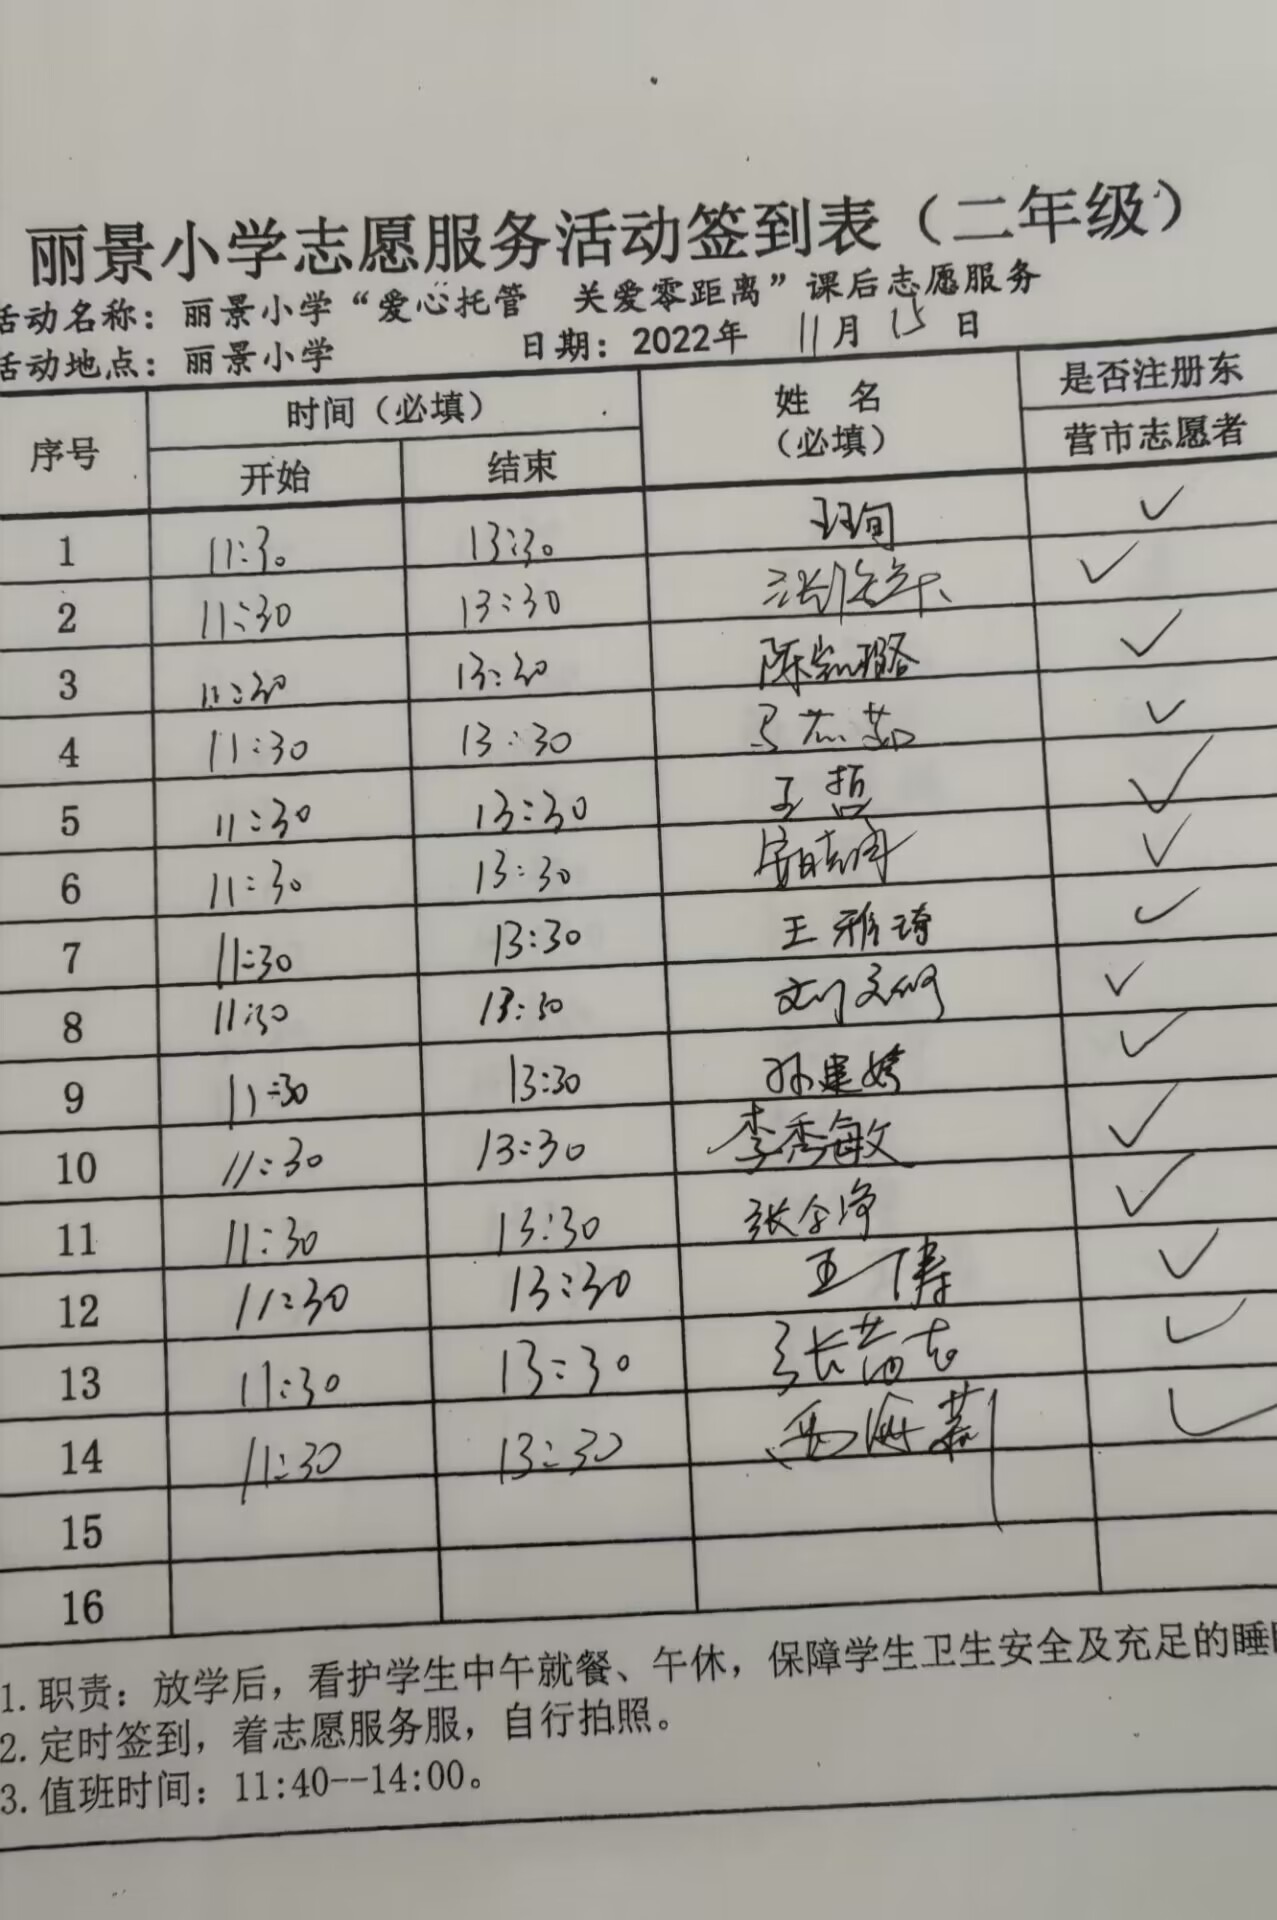 丽景小学志愿服务活动签到表（二年级）
活动名称：丽景小学“爱心托管 关爱零距离”课后志愿服务
活动地点：丽景小学 日期：2022年 11月 15日
序号 时间（必填） 姓 名（必填） 是否注册东营市志愿者
开始 结束
1 11:30 13:30 ✓
2 11:30 13:30 ✓
3 11:30 13:30 陈凯璐 ✓
4 11:30 13:30 ✓
5 11:30 13:30 王哲 ✓
6 11:30 13:30 ✓
7 11:30 13:30 王雅琦 ✓
8 11:30 13:30 ✓
9 11:30 13:30 孙建嫔 ✓
10 11:30 13:30 李秀敏 ✓
11 11:30 13:30 ✓
12 11:30 13:30 ✓
13 11:30 13:30 ✓
14 11:30 13:30 ✓
15
16
1.职责：放学后，看护学生中午就餐、午休，保障学生卫生安全及充足的睡
2.定时签到，着志愿服务服，自行拍照。
3.值班时间：11:40--14:00。